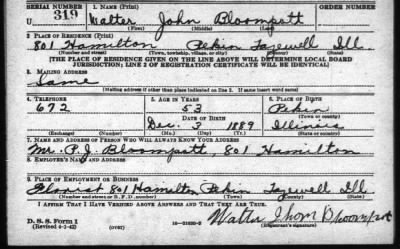 SERIAL NUMBER 1. NAME (Print) ORDER NUMBER
319 Walter John Bloompott
(First) (Middle) (Last)
2. PLACE OF RESIDENCE (Print)
801 Hamilton Pekin Tazewell Ill.
(Number and street) (Town, township, village, or city) (County) (State)
[THE PLACE OF RESIDENCE GIVEN ON THE LINE ABOVE WILL DETERMINE LOCAL BOARD
JURISDICTION; LINE 2 OF REGISTRATION CERTIFICATE WILL BE IDENTICAL]
3. MAILING ADDRESS
Same
[Mailing address if other than place indicated on line 2. If same insert word same]
4. TELEPHONE 5. AGE IN YEARS 6. PLACE OF BIRTH
672 53 Pekin
DATE OF BIRTH (Town or county)
Dec. 3 1889 Illinois
(Exchange) (Number) (Mo.) (Day) (Yr.) (State or country)
7. NAME AND ADDRESS OF PERSON WHO WILL ALWAYS KNOW YOUR ADDRESS
Mr. P. J. Bloompott, 801 Hamilton
8. EMPLOYER'S NAME AND ADDRESS
9. PLACE OF EMPLOYMENT OR BUSINESS
Florist 801 Hamilton Pekin Tazewell Ill
(Number and street or R. F. D. number) (Town) (County) (State)
I AFFIRM THAT I HAVE VERIFIED ABOVE ANSWERS AND THAT THEY ARE TRUE.
D. S. S. Form 1
(Revised 4-1-42) (over) Walter Bloompott
(Registrant's signature)